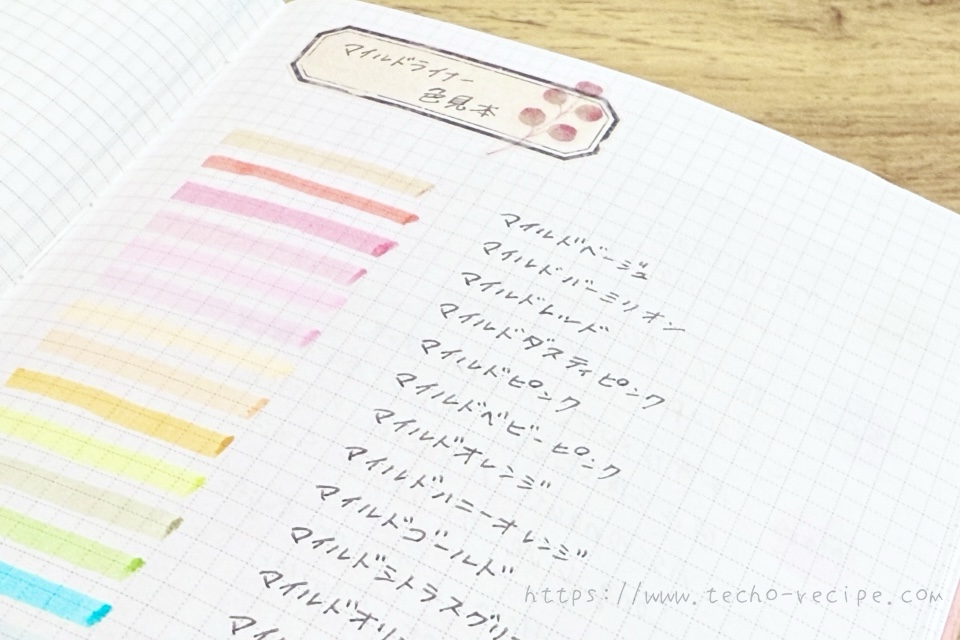 マイルドライナー
色見本
マイルドベージュ
マイルドバーミリオン
マイルドレッド
マイルドダスティピンク
マイルドピンク
マイルドベビーピンク
マイルドオレンジ
マイルドハニーオレンジ
マイルドゴールド
マイルドシトラスグリ
マイルドオリ
マイルド
https://www.techo-recipe.com